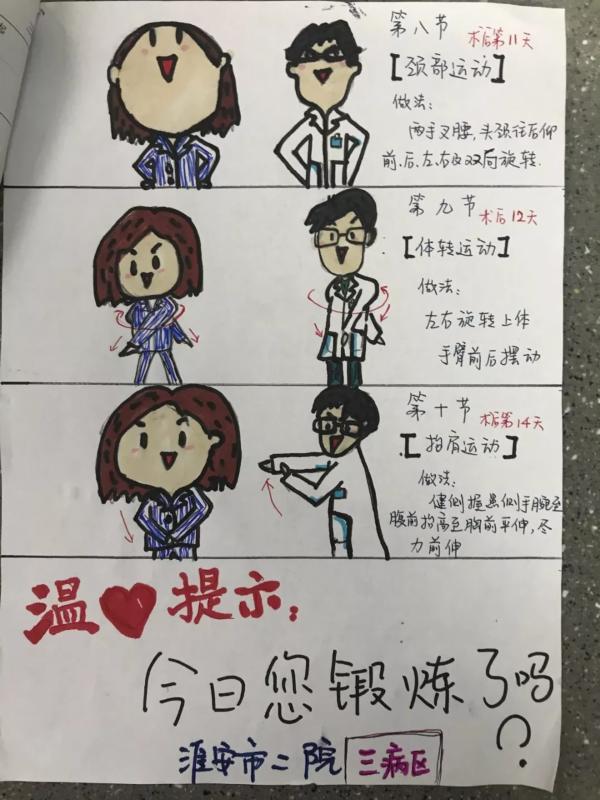 第八节
术后第11天
【颈部运动】
做法:
两手叉腰,头颈往后仰
前、后、左、右及双向旋转.
第九节
术后12天
【体转运动】
做法:
左右旋转上体
手臂前后摆动
第十节
术后第14天
【抬肩运动】
做法:
健侧握患侧手腕至
腹前抬高至胸前平伸,尽
力前伸
温❤提示:
今日您锻炼了吗?
淮安市二院 三病区